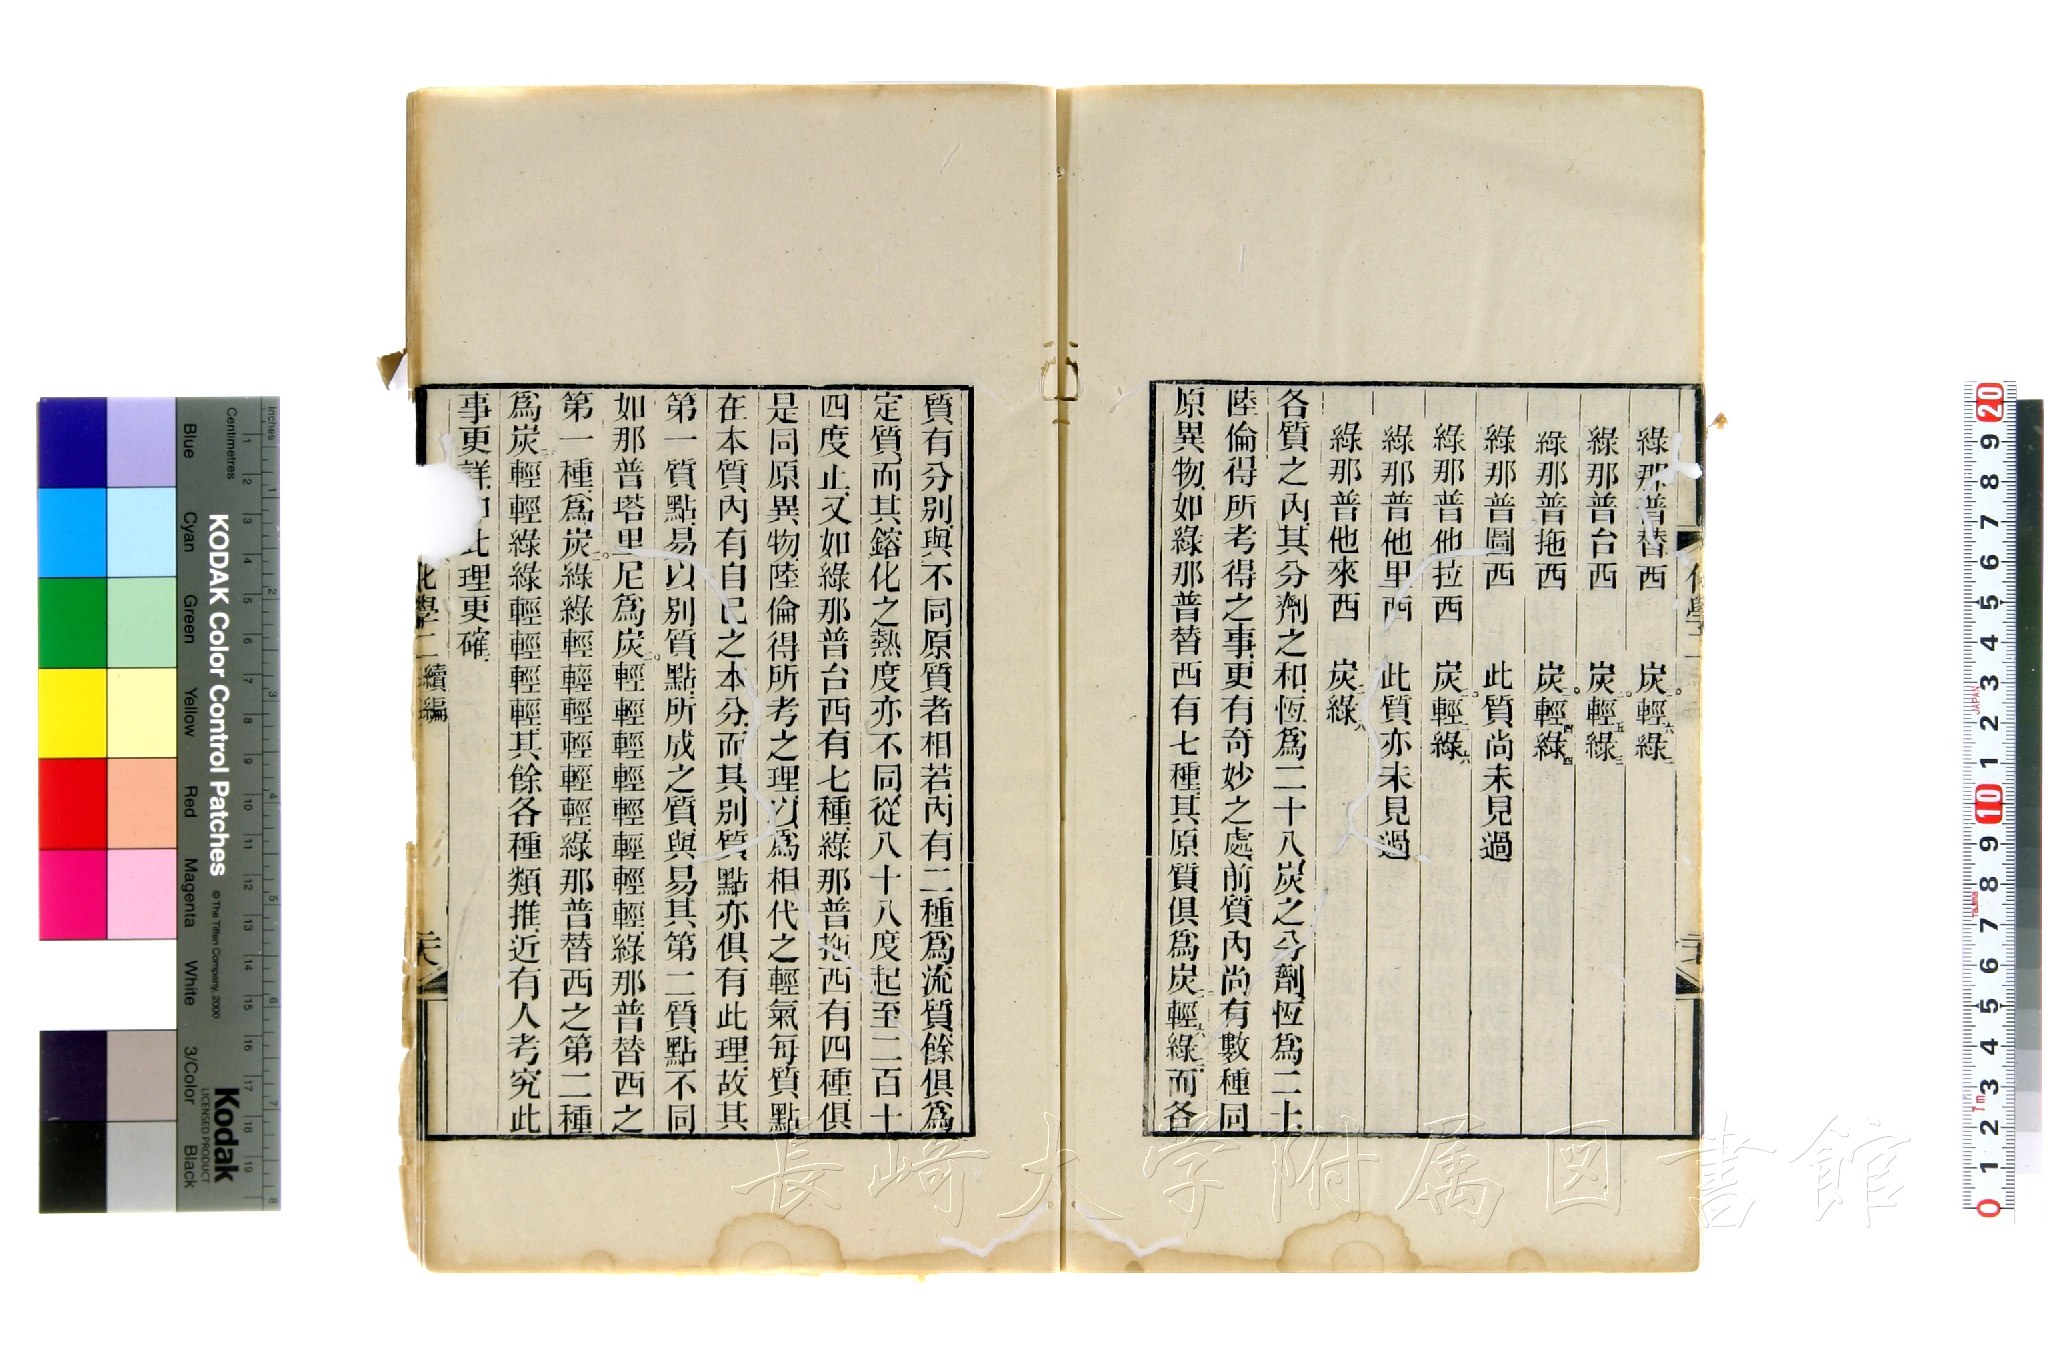 綠那普替西 炭二○輕六綠二
綠那普台西 炭二○輕五綠三
綠那普拖西 炭二○輕四綠四
綠那普圖西 此質尚未見過
綠那普他拉西 炭二○輕二綠六
綠那普他里西 此質亦未見過
綠那普他來西 炭二○綠八
各質之內其分劑之和恆為二十八炭之分劑恆為二十
陸倫得所考得之事更有奇妙之處前質內尚有數種同
原異物如綠那普替西有七種其原質俱為炭二○輕六綠二而各
質有分別與不同原質者相若內有二種為流質餘俱為
定質而其鎔化之熱度亦不同從八十八度起至二百十
四度止又如綠那普台西有七種綠那普拖西有四種俱
是同原異物陸倫得所考之理以為相代之輕氣每質點
在本質內有自己之本分而其別質點亦俱有此理故其
第一質點易以別質點所成之質與易其第二質點不同
如那普塔里尼為炭二○輕輕輕輕輕輕輕輕綠那普替西之
第一種為炭二○綠綠輕輕輕輕輕輕綠那普替西之第二種
為炭二○輕輕綠綠輕輕輕輕其餘各種類推近有人考究此
事更詳此理更確
化學二 續編
KODAK Color Control Patches
© The Tiffen Company, 2000
Kodak
LICENSED PRODUCT
Inches
Centimetres
Blue
Cyan
Green
Yellow
Red
Magenta
White
3/Color
Black
JAPAN
Tajima
長崎大学附属図書館